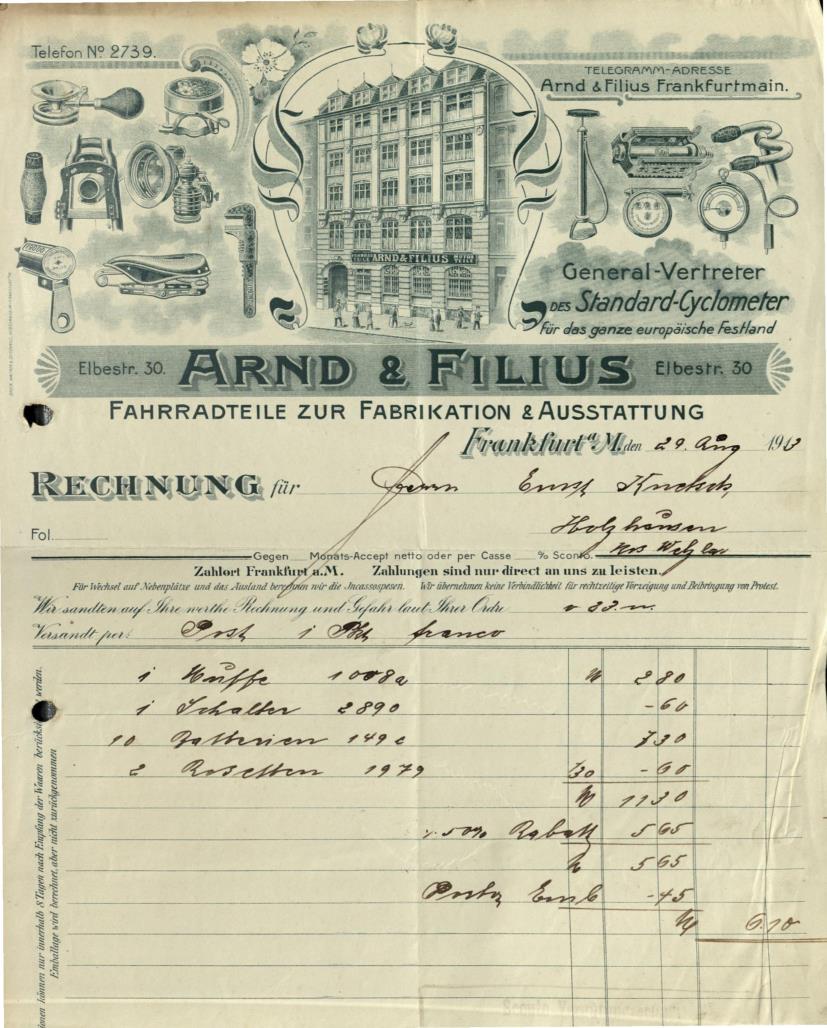 Telefon Nº 2739.
TELEGRAMM-ADRESSE
Arnd & Filius Frankfurtmain.
ARND & FILIUS
General-Vertreter
DES Standard-Cyclometer
für das ganze europäische Festland
Elbestr. 30. ARND & FILIUS Elbestr. 30
FAHRRADTEILE ZUR FABRIKATION & AUSSTATTUNG
Frankfurt a/M. den 29. Aug 1913
RECHNUNG für Herrn Ernst
Holzhausen
Krs Wetzlar
Fol.
Gegen Monats-Accept netto oder per Casse % Sconto.
Zahlort Frankfurt a.M. Zahlungen sind nur direct an uns zu leisten.
Für Wechsel auf Nebenplätze und das Ausland berechnen wir die Incassospesen. Wir übernehmen keine Verbindlichkeit für rechtzeitige Vorzeigung und Beibringung von Protest.
Wir sandten auf Ihre werthe Rechnung und Gefahr laut Ihrer Ordre
Versandt per: Post 1 Pkt franco
1 Muffe 1008a M 2 80
1 Schalter 2890 - 60
10 Batterien 149c 7 30
2 Rosetten 1979 /30 - 60
M 11 30
50% Rabatt 5 65
M 5 65
Porto Emb - 45
M 6.10
ionen können nur innerhalb 8 Tagen nach Empfang der Waaren werden.
Emballage wird berechnet, aber nicht zurückgenommen